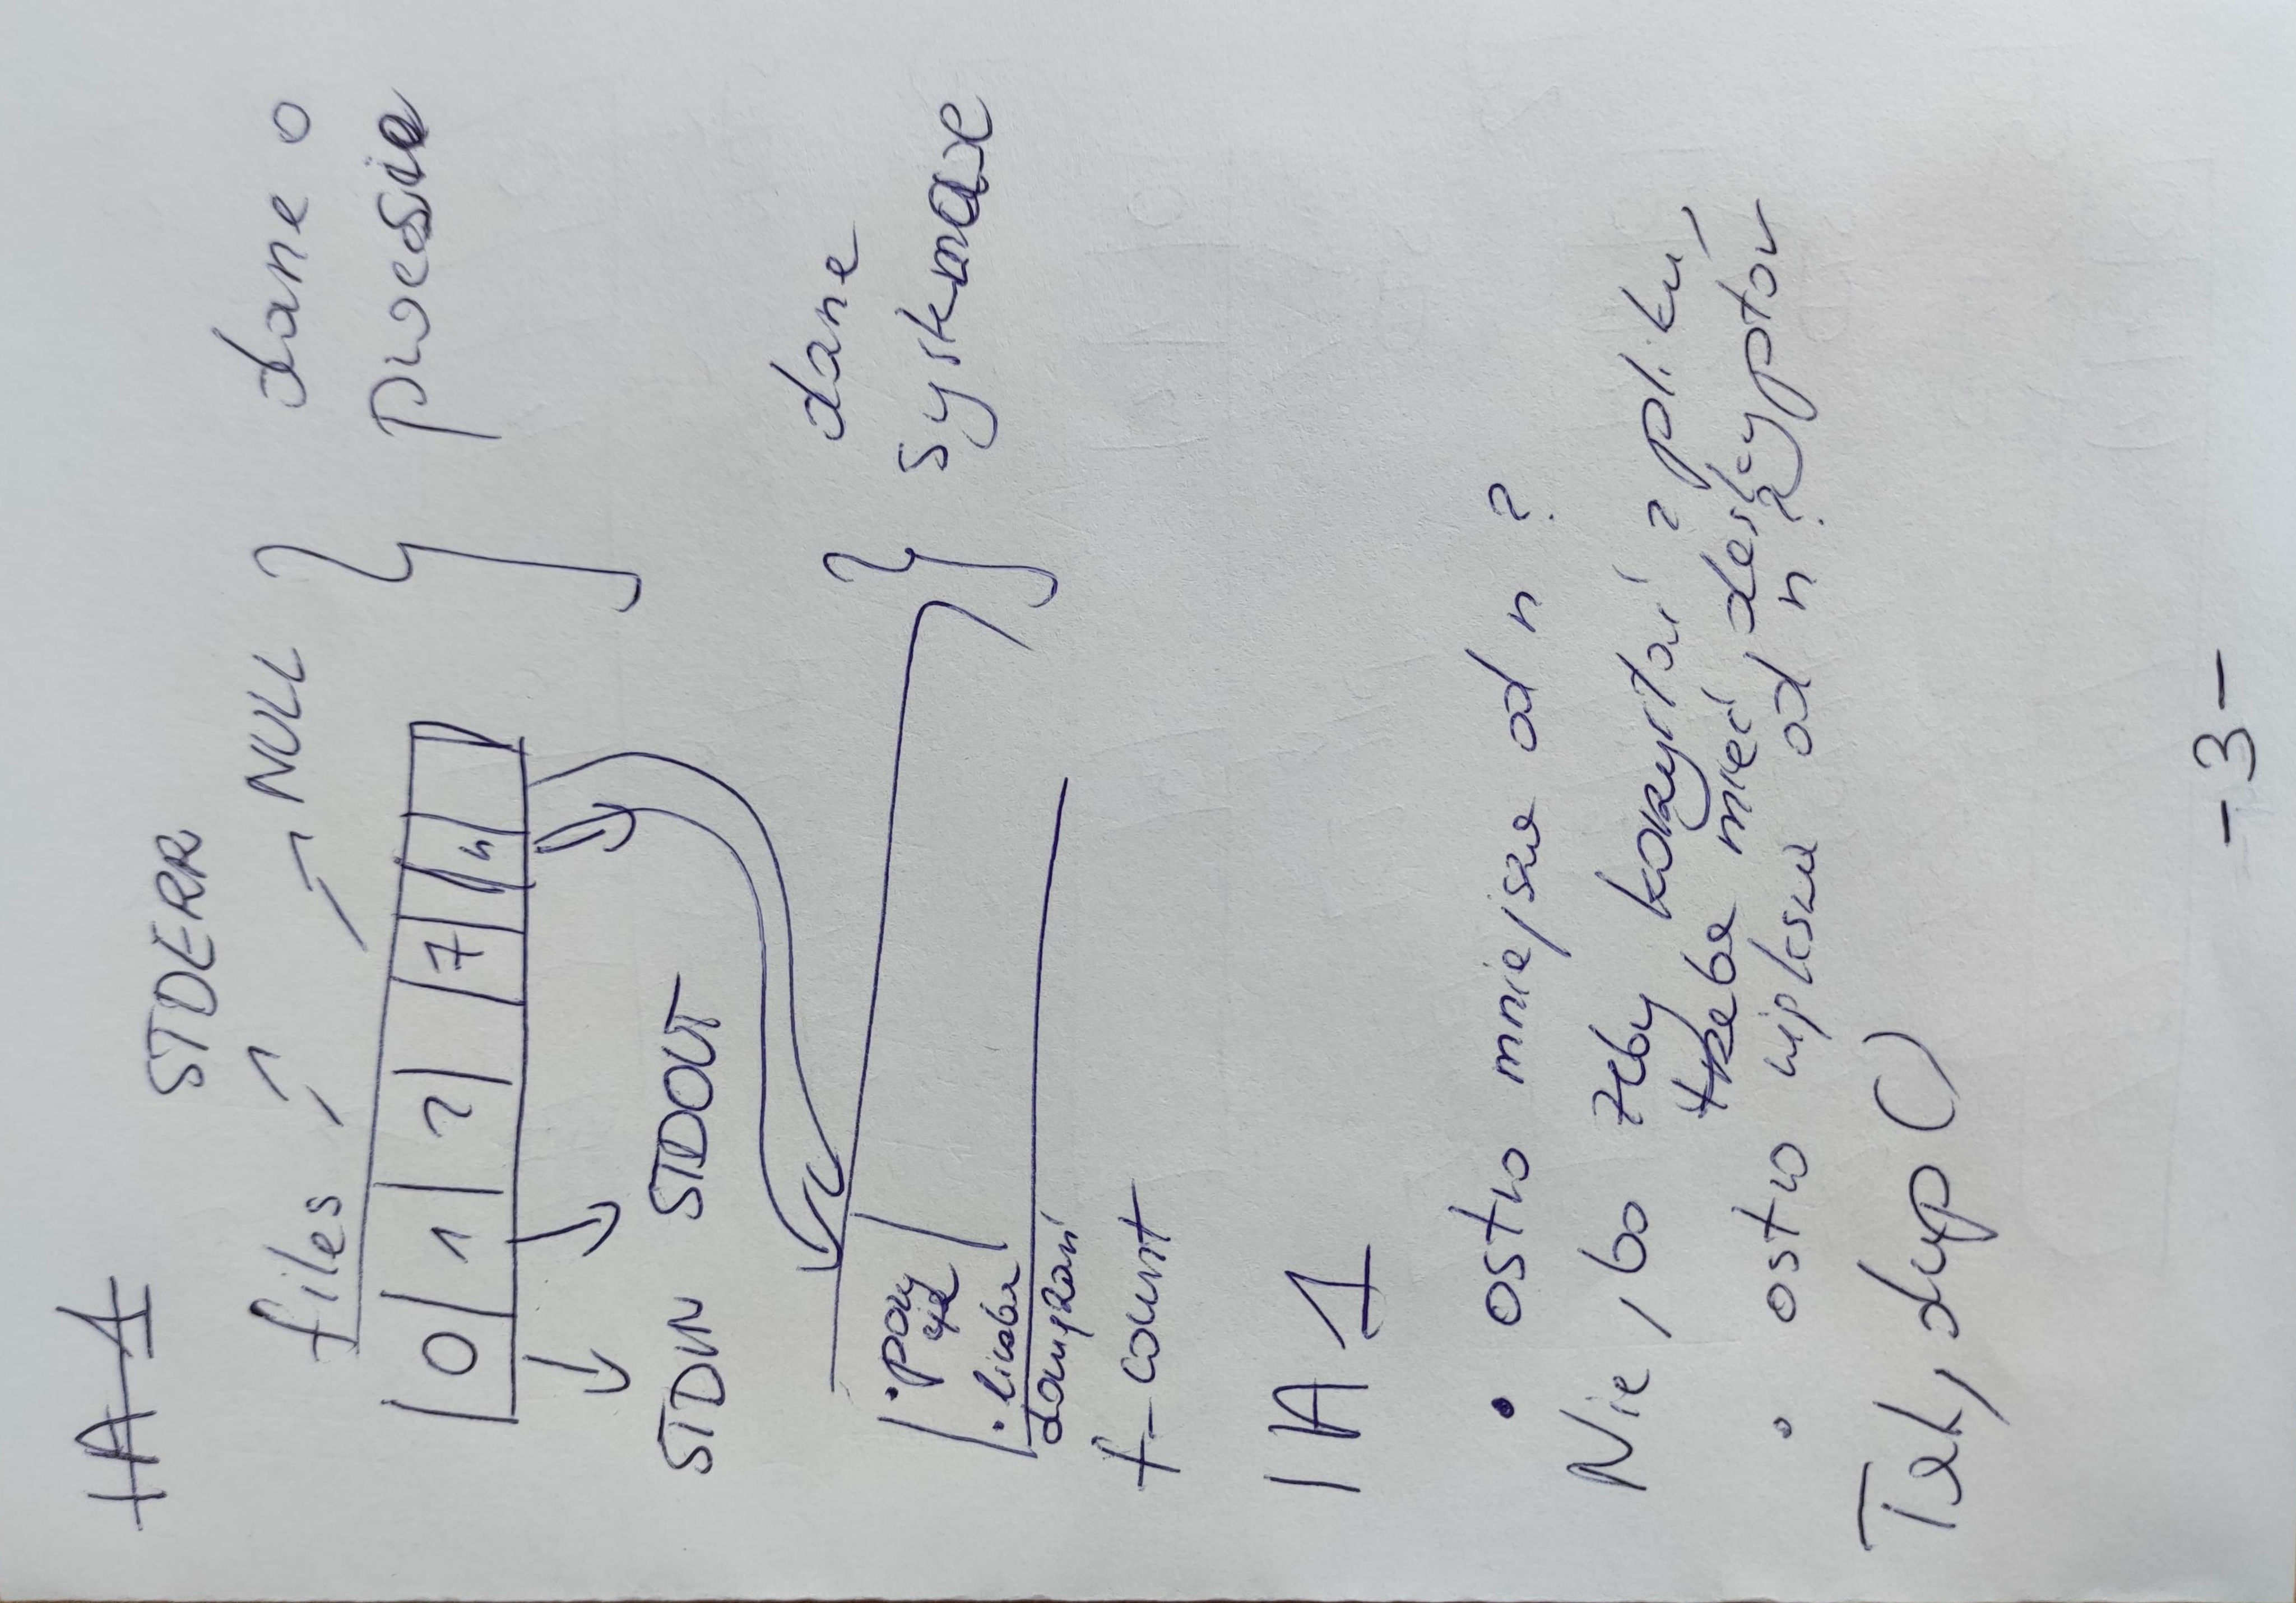 IA1
STDERR
files NULL
dane o
procesie
0 1 2 7 n
STDIN STDOUT
dane
systemowe
• pozycja
• liczba
dowiązań
f-count
IA1
• ostro mniejsze od n ?
Nie, bo żeby korzystać z pliku,
trzeba mieć deskryptor
• ostro większe od n ?
Tak, dup()
-3-